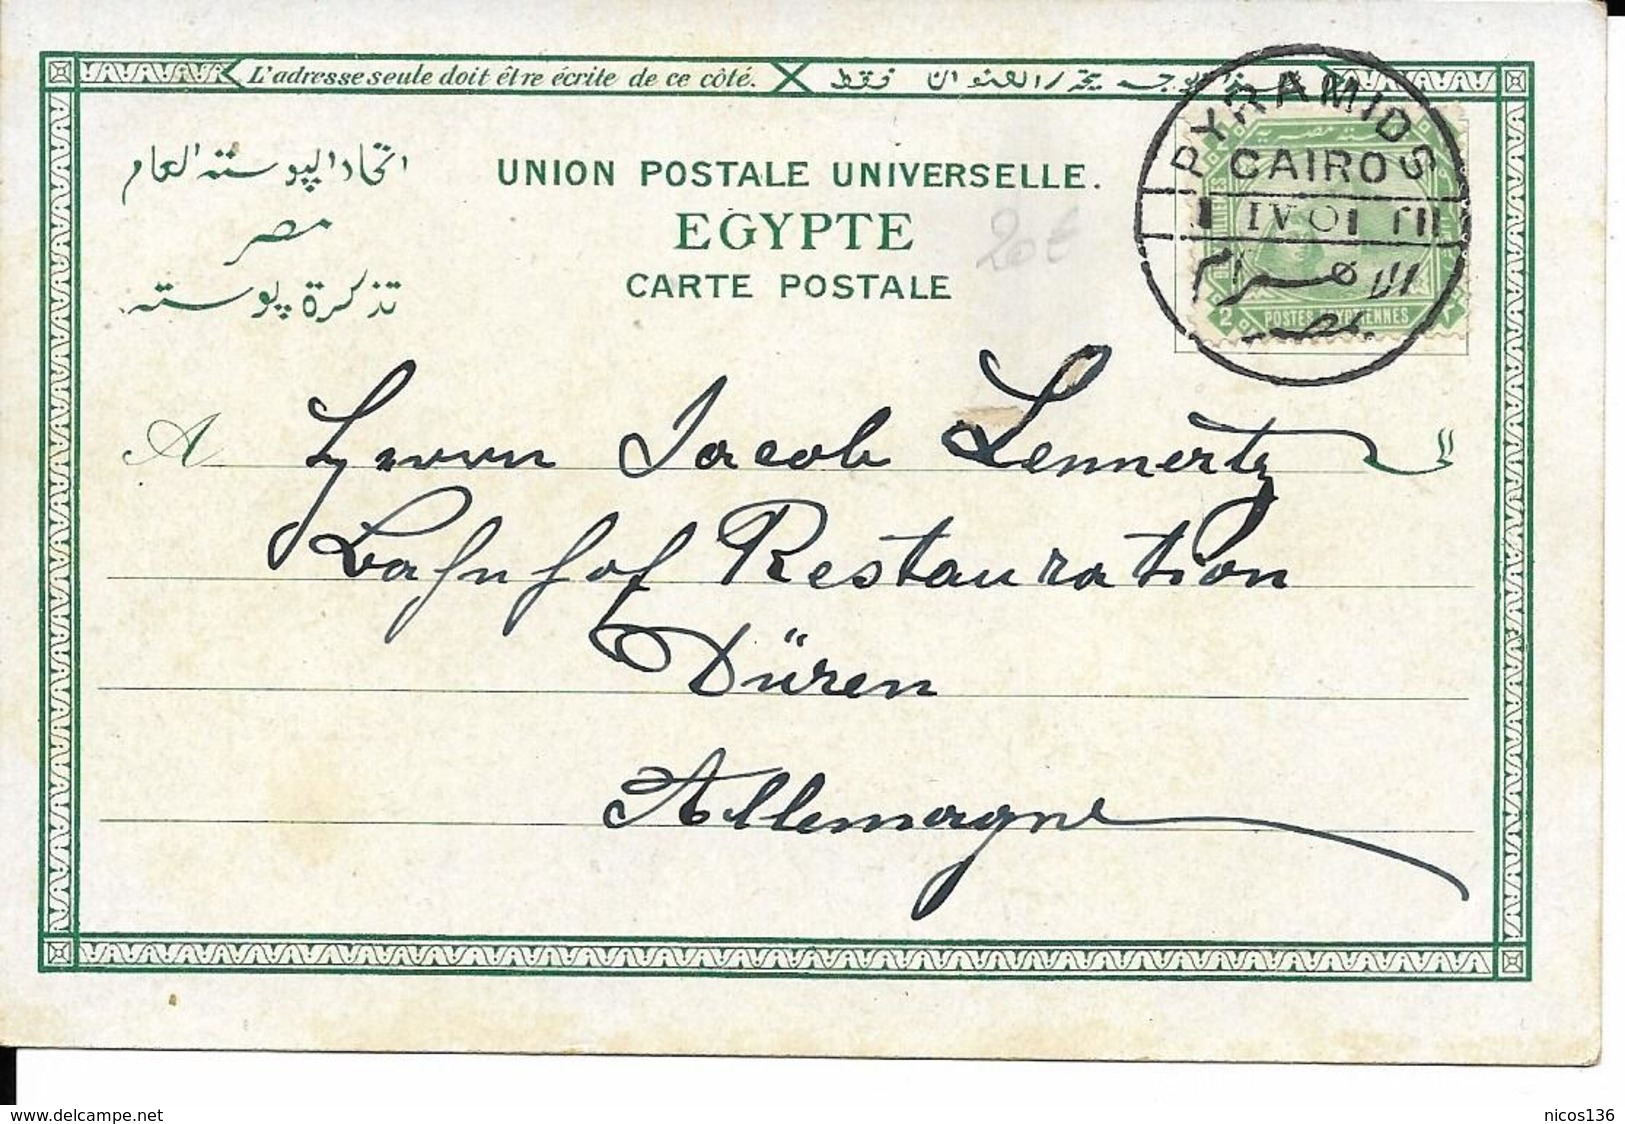 L'adresse seule doit être écrite de ce côté.
اتحاد البوسته العام
مصر
تذكرة بوسته
UNION POSTALE UNIVERSELLE.
EGYPTE
CARTE POSTALE
20€
PYRAMIDS
CAIRO
1 IV 01
الاهرام
مصر
2 POSTES EGYPTIENNES ٢
A Herrn Jacob Lennertz
Bahnhof Restauration
Düren
Allemagne
www.delcampe.net
nicos136